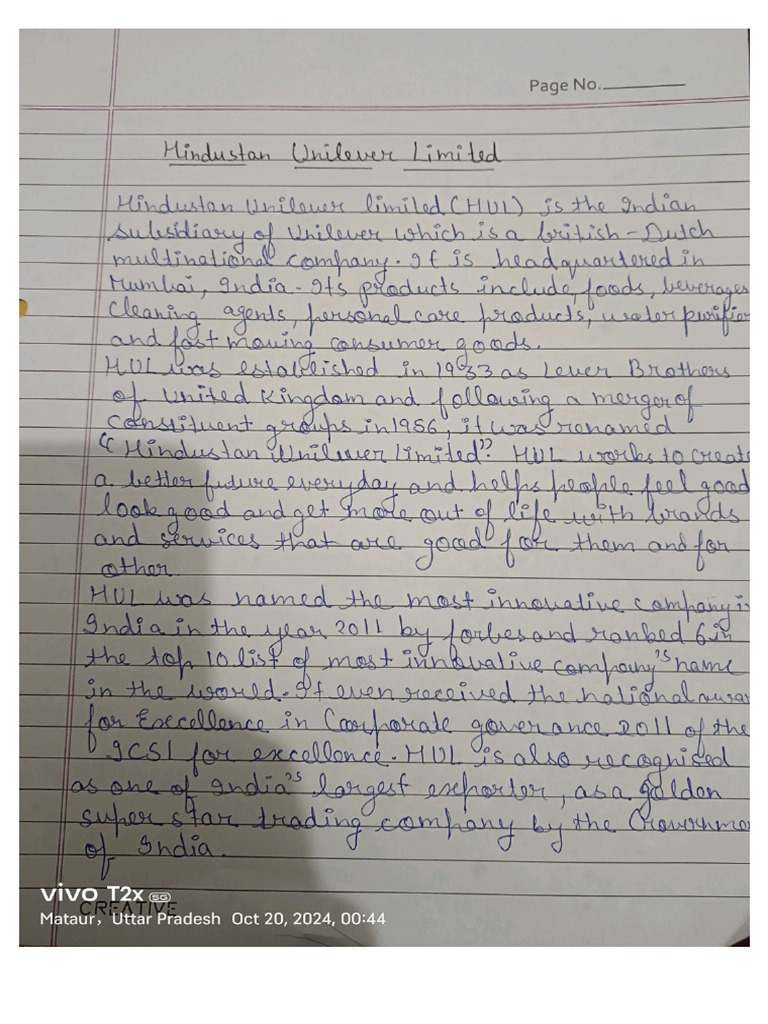 Page No.
Hindustan Unilever Limited
Hindustan Unilever limited (HUL) is the Indian
subsidiary of Unilever which is a british-Dutch
multinational company. It is headquartered in
Mumbai, India. Its products include, foods, beverages
cleaning agents, personal care products, water purifier
and fast moving consumer goods.
HUL was established in 1933 as Lever Brothers
of united Kingdom and following a merger of
constituent groups in 1956, it was renamed
"Hindustan Unilever Limited". HUL works to create
a better future everyday and helps people feel good
look good and get more out of life with brands
and services that are good for them and for
other.
HUL was named the most innovative company in
India in the year 2011 by forbes and ranked 6 in
the top 10 list of most innovative company's name
in the world. It even received the national awar
for Excellence in Coorporate governance 2011 of the
ICSI for excellence. HUL is also recognised
as one of India's largest exporter, as a golden
super star trading company by the Governme
of India.
vivo T2x 5G
CREATIVE
Mataur, Uttar Pradesh Oct 20, 2024, 00:44